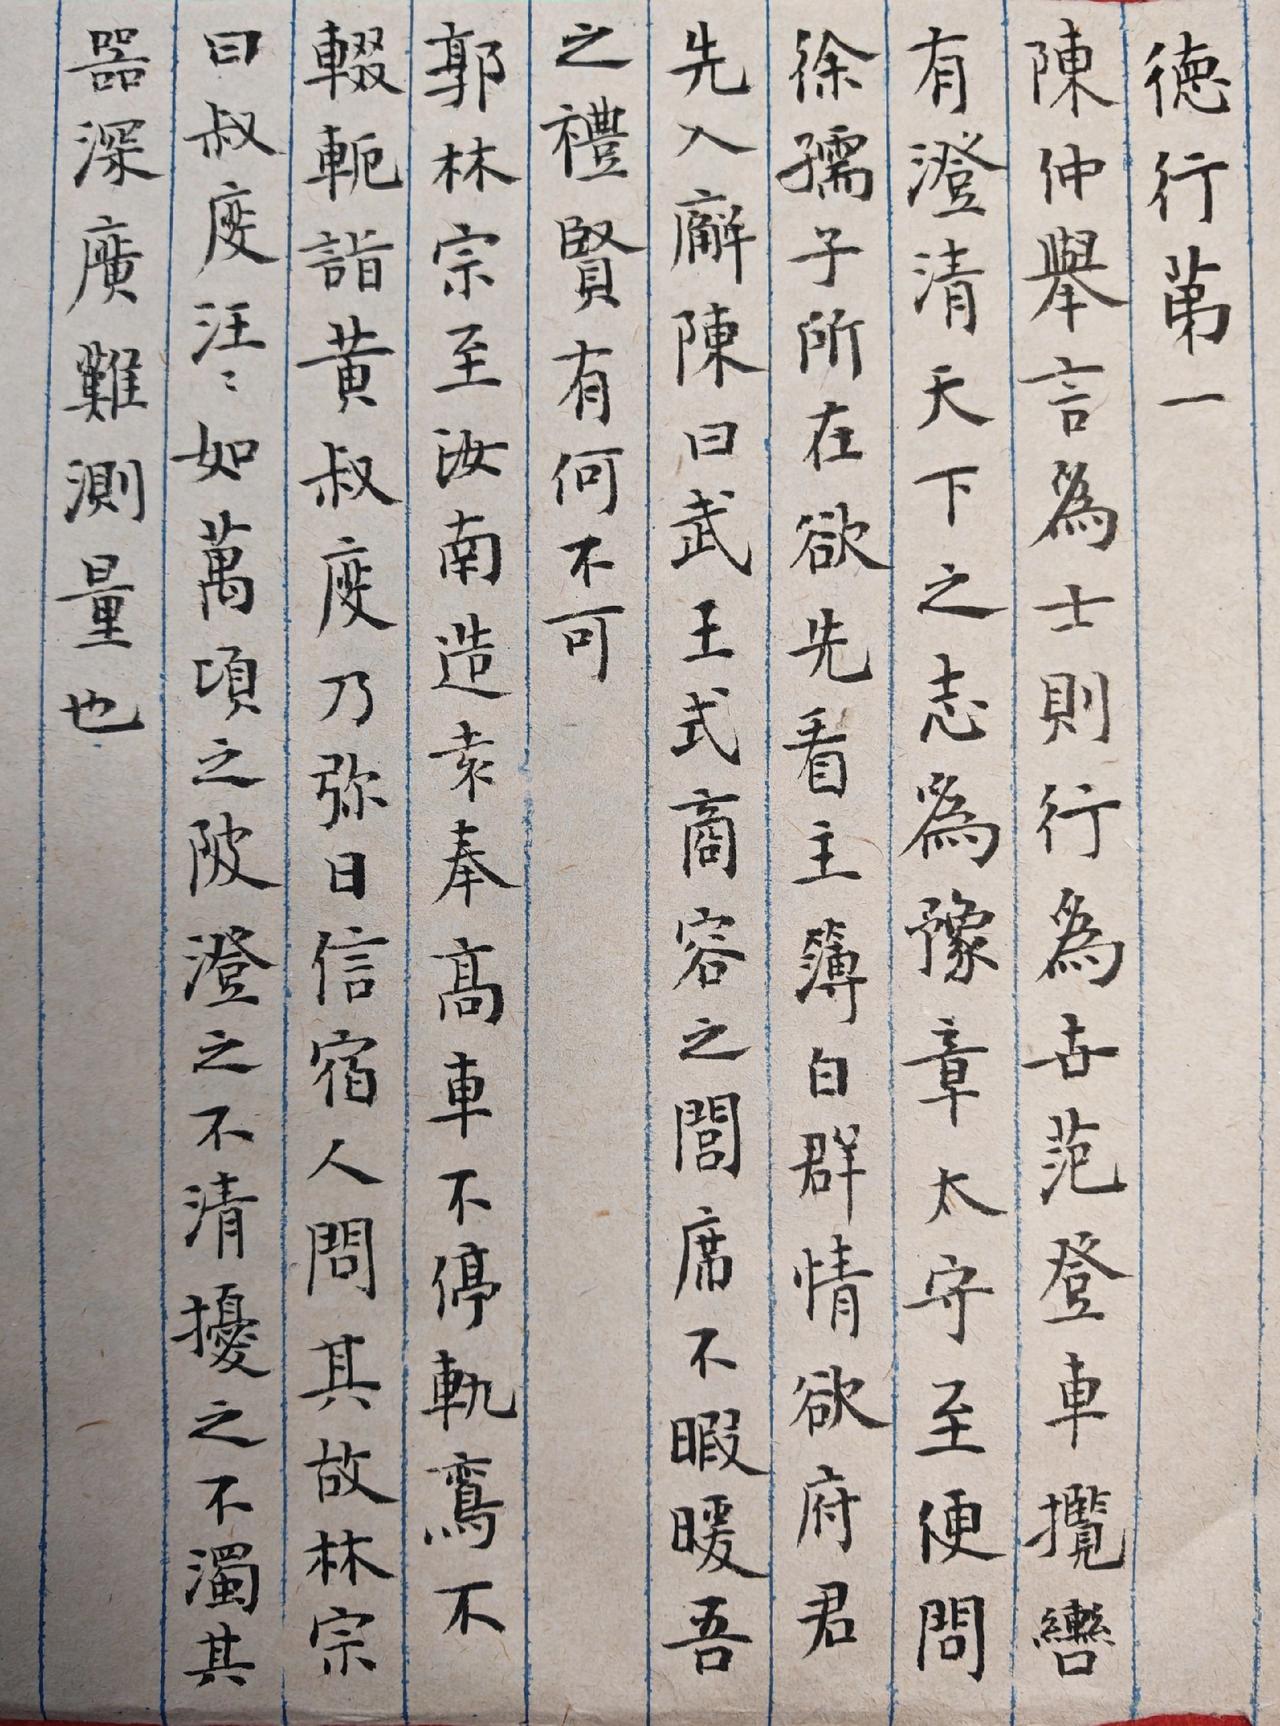 德行第一
陳仲舉言為士則行為世范登車攬轡
有澄清天下之志為豫章太守至便問
徐孺子所在欲先看主簿白群情欲府君
先入廨陳曰武王式商容之閭席不暇暖吾
之禮賢有何不可
郭林宗至汝南造袁奉高車不停軌鸞不
輟軛詣黃叔度乃弥日信宿人問其故林宗
曰叔度汪〻如萬頃之陂澄之不清擾之不濁其
器深廣難測量也